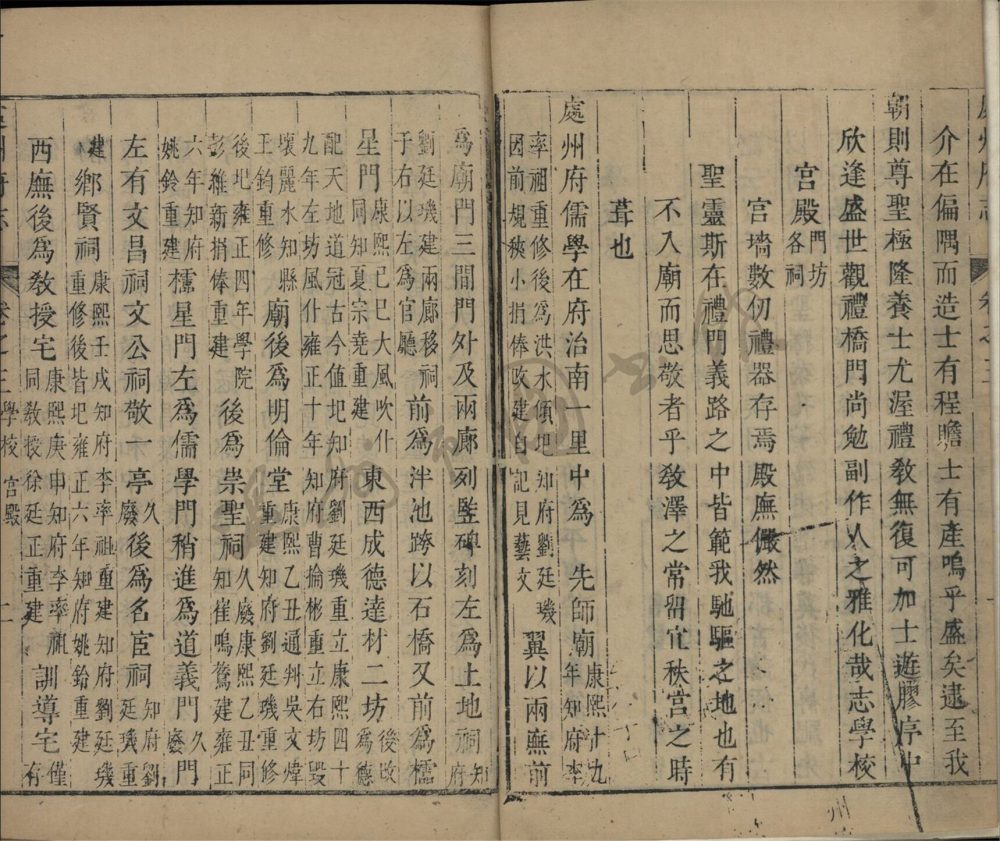 介在偏隅而造士有程贍士有產嗚乎盛矣逮至我
朝則尊聖極隆養士尤渥禮教無復可加士遊膠序中
欣逢盛世觀禮橋門尚勉副作人之雅化哉志學校
宮殿門坊各祠
宮墻數仞禮器存焉殿廡儼然
聖靈斯在禮門義路之中皆範我馳驅之地也有
不入廟而思敬者乎教澤之常留宜秩宮之時
葺也
處州府儒學在府治南一里中為 先師廟康熙十九年知府李率祖重修後為洪水傾圯知府劉廷璣因前規狹小捐俸改建自記見藝文翼以兩廡前
為廟門三間門外及兩廊列豎碑刻左為土地祠知府劉廷璣建兩廊移于右以左為官廳前為泮池跨以石橋又前為櫺
星門康熙己巳大風吹壞同知夏宗堯重建東西成德達材二坊後改為德配天地道冠古今值圯知府劉廷璣重立康熙四十九年左坊風什雍正十年知府曹掄彬重立右坊毀壞麗水知縣王鈞重修廟後為明倫堂康熙乙丑通判吳文煒重建知府劉廷璣重修後圯雍正四年學院彭維新捐俸重建後為崇聖祠久廢康熙乙丑同知崔鳴鷟建雍正六年知府姚鈴重建櫺星門左為儒學門稍進為道義門久廢門
左有文昌祠文公祠敬一亭久廢後為名宦祠知府劉廷璣重建鄉賢祠康熙壬戌知府李率祖重建知府劉廷璣重修後皆圯雍正六年知府姚鈴重建
西廡後為教授宅康熙庚申知府李率祖同教授徐廷正重建訓導宅僅有
處州府志 卷之三 學校 宮殿 二